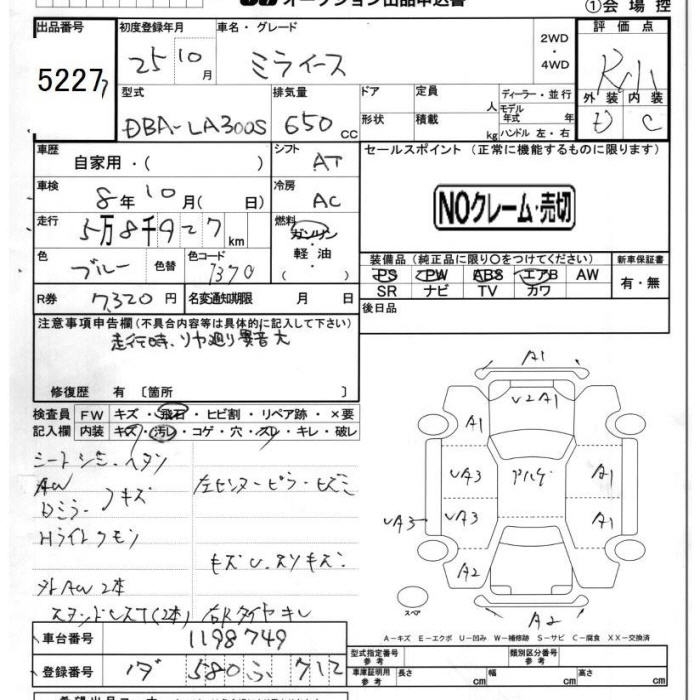 オークション出品申込書
①会場控
出品番号
5227
初度登録年月
25 10 月
車名・グレード
ミライース
2WD
・
4WD
評価点
外装 内装
D C
型式
DBA-LA300S
排気量
650 cc
ドア
形状
定員 人
積載 kg
ディーラー・並行
モデル年式 年
ハンドル 左・右
車歴
自家用・( )
シフト
AT
車検
8年10月( 日)
冷房
AC
走行
5万8千927km
燃料
ガソリン
・
軽油
・
( )
色
ブルー
色替
色コード
R券
7,320円
名変通知期限 月 日
セールスポイント(正常に機能するものに限ります)
NOクレーム・売切
装備品(純正品に限り○をつけてください)
PS PW ABS エアB AW
SR ナビ TV カワ
新車保証書
有・無
後日品
注意事項申告欄(不具合内容等は具体的に記入して下さい)
走行時、リヤ廻り異音大
修復歴 有〔箇所 〕
検査員記入欄
FW キズ・飛石・ヒビ割・リペア跡・×要
内装 キズ・汚レ・コゲ・穴・スレ・キレ・破レ
シートシミ・ヘタリ
AW
Dミラー キズ
左センターピラーヒズミ
Hライトクモリ
キズU、スリキズ
外AW2本
スタッドレスT(2本)
A1
U2A1
A1
UA3
A1
UA3
UA3
A1
A2
A2
スペア
A-キズ E-エクボ U-凹み W-補修跡 S-サビ C-腐食 XX-交換済
車台番号
1198749
登録番号
580 ふ 712
型式指定番号
参考
類別区分番号
参考
車庫証明用
参考
長さ cm
幅 cm
高さ cm